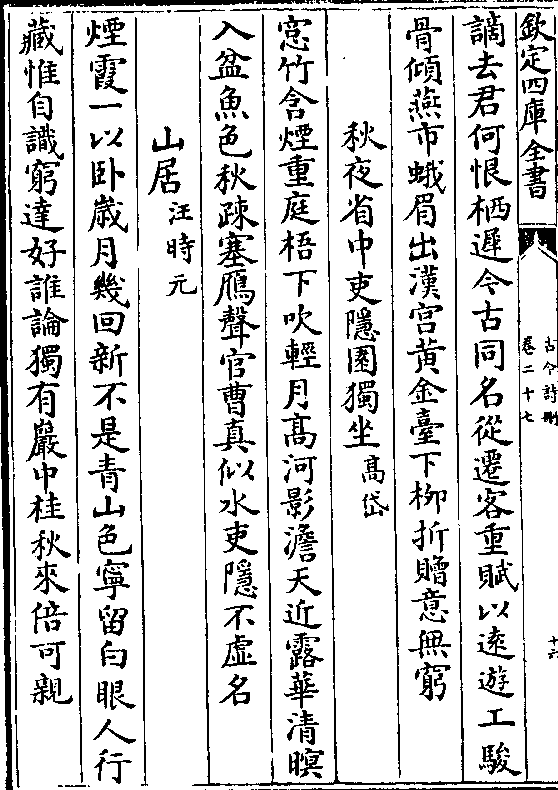 欽定四庫全書
古今詩刪
卷二十七
十六
謫去君何恨栖遲今古同名從遷客重賦以逺遊工駿
骨傾燕市蛾眉出漢宮黄金臺下柳折贈意無窮
秋夜省中吏隱園獨坐 髙岱
窓竹含煙重庭梧下吹輕月髙河影澹天近露華清暝
入盆魚色秋疎塞鴈聲官曹真似水吏隱不虚名
山居 汪時元
煙霞一以卧歳月幾回新不是青山色寧留白眼人行
藏惟自識窮達好誰論獨有巖中桂秋來倍可親